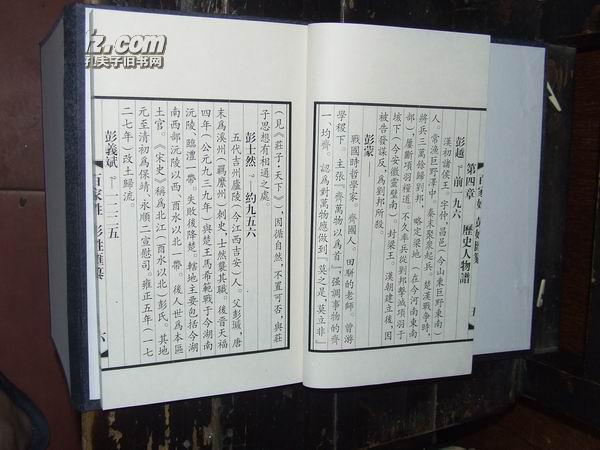 百家姓 彭姓匯纂
五
第四章 歷史人物譜
彭越 ?—前一九六
漢初諸侯王。字仲,昌邑(今山東巨野東南)
人。常漁巨野澤中。秦末聚衆起兵。楚漢戰爭時,
將兵三萬餘歸劉邦,略定梁地(在今河南東南
部),屢斷項羽糧道。不久率兵從劉邦擊滅項羽于
垓下(今安徽靈壁南),封梁王。漢朝建立後,因
被告發謀反,爲劉邦所殺。
彭蒙—
戰國時哲學家。齊國人。田駢的老師。曾游
學稷下。主張『齊萬物以爲首』,强調事物的齊
一、均齊。認爲對萬物應做到『莫之是,莫之非』
(見《莊子·天下》),因循自然,不置可否,與莊
子思想有相通之處。
彭士然 ?—約九五六
五代吉州廬陵(今江西吉安)人。父彭瑊,唐
末爲溪州(羈縻州)刺史,士然襲其職。後晋天福
四年(公元九三九年)與楚王馬希範戰于今湖南
沅陵、臨澧一帶。失敗後降楚。轄地主要包括今湖
南西部沅陵以西、酉水以北一帶。後人世爲本區
土官。《宋史》稱爲北江(酉水以北)彭氏。其地
元至清初爲保靖、永順二宣慰司。雍正五年(一七
二七年)改土歸流。
彭義斌 ?—一二二五
百家姓 彭姓匯纂
六
z.com
孔夫子旧书网